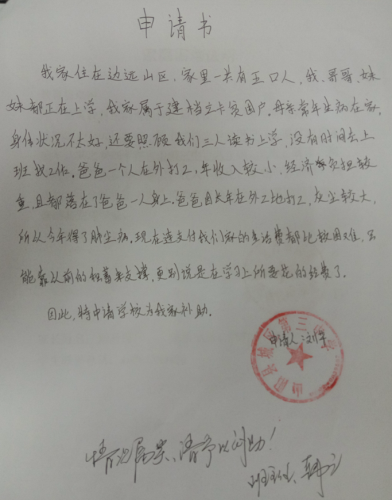 申请书
我家住在边远山区，家里一共有五口人，我、哥哥、妹
妹都正在上学，我家属于建档立卡贫困户。母亲常年生病在家，
身体状况不太好，还要照顾我们三人读书上学，没有时间去上
班找工作。爸爸一个人在外打工，年收入较小，经济负担较
重且都落在了爸爸一人身上。爸爸因长年在外工地打工，灰尘较大，
所以今年得了肺尘病。现在连支付我们家的生活费都比较困难，只
能靠从前的积蓄来支撑，更别说是在学习上所要花的经费了。
因此，特申请学校为我家补助。
申请人：刘
情况属实，请予以资助！
班主任：韩